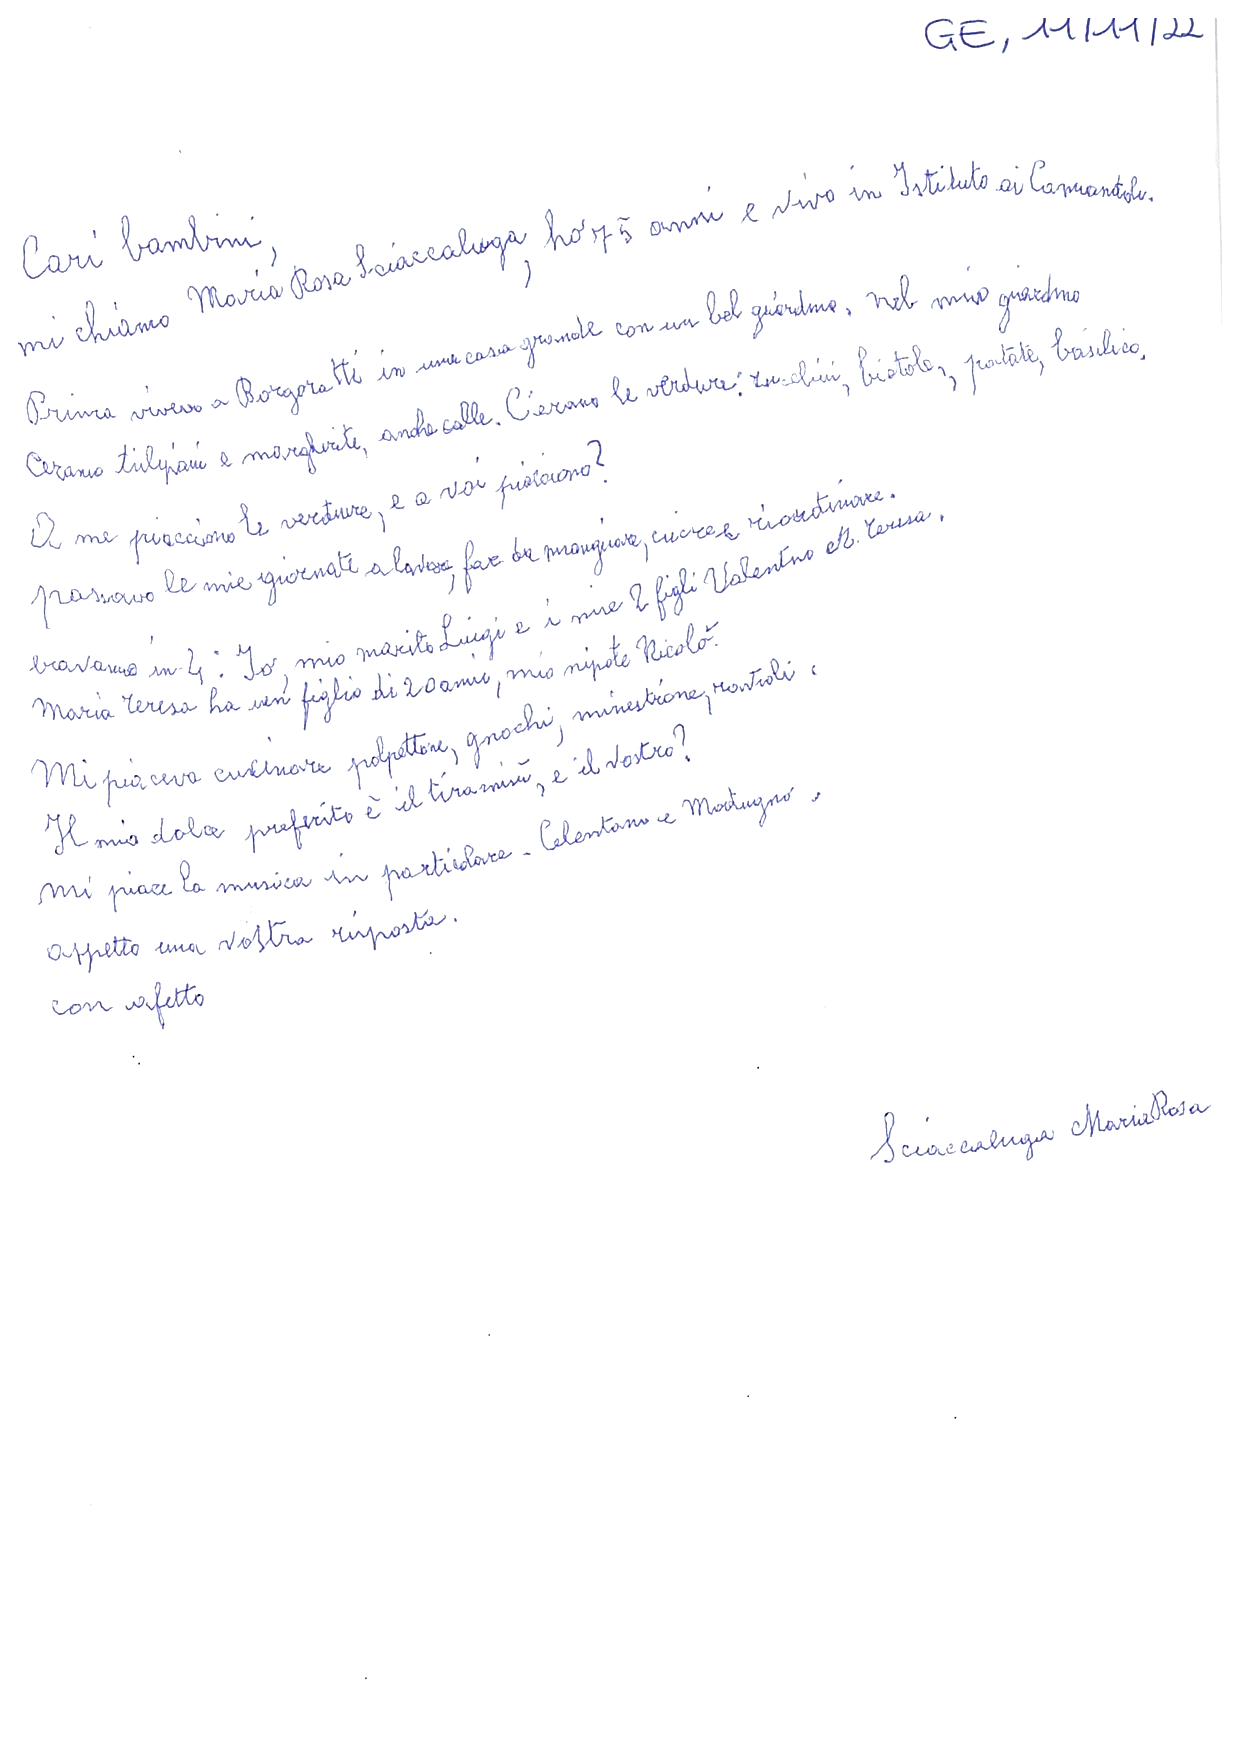 GE, 11/11/22
Cari bambini,
mi chiamo Maria Rosa Sciaccaluga, ho 75 anni e vivo in Istituto ai Camandoli.
Prima vivevo a Borgoratti in una casa grande con un bel giardino. Nel mio giardino
cerano tulipani e margherite, anche calle. C'erano le verdure: zucchini, bietole, patate, basilico.
A me piacciono le verdure, e a voi piaciono?
passavo le mie giornate a lavare, far da mangiare, cucire e riordinare.
eravamo in 4: Io, mio marito Luigi e i miei 2 figli Valentino M. Teresa.
Maria Teresa ha un figlio di 20 anni, mio nipote Nicolò.
Mi piaceva cucinare polpettone, gnochi, minestrone, ravioli.
Il mio dolce preferito è il tiramisù, e il vostro?
Mi piace la musica in particolare - Celentano e Modugno.
aspetto una vostra risposta.
con afetto
Sciaccaluga Maria Rosa